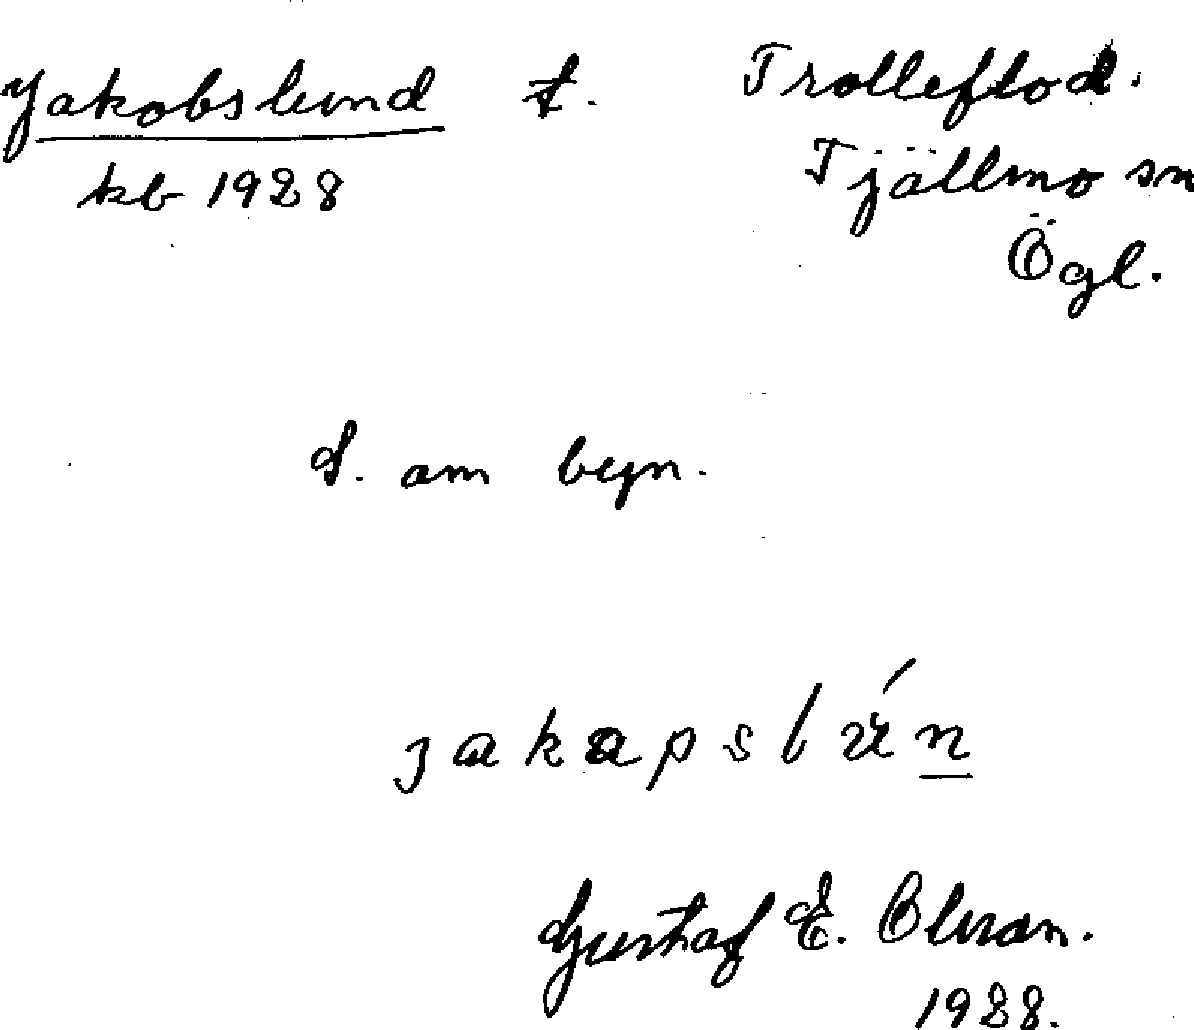 Jakobslund t. Trolleflod.
kb 1928 Tjällmo sn
Ögl.
S. om byn.
jakapslún
Gustaf E. Olsson.
1928.